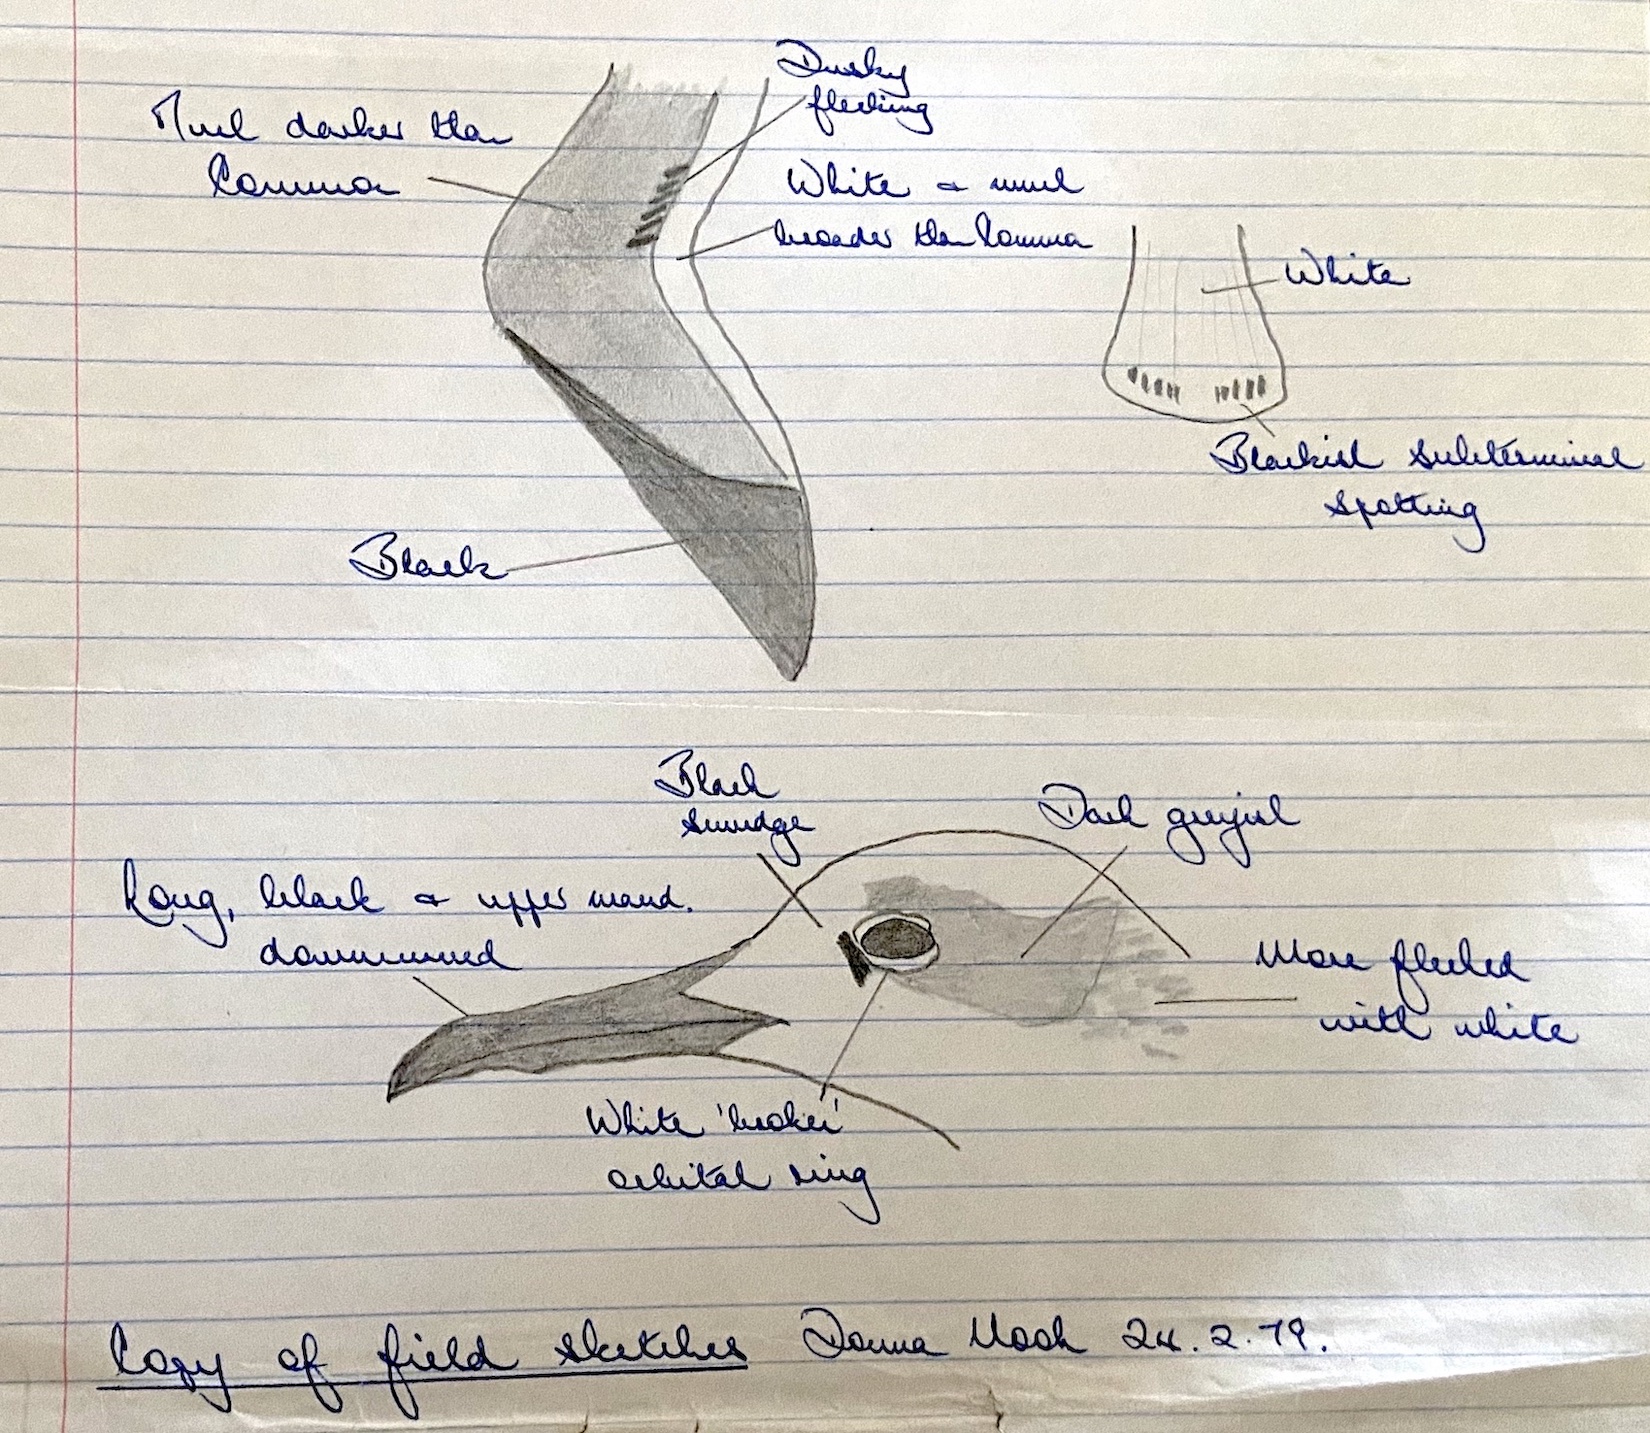 Dusky
flecking
Much darker than
Common
White & much
broader than Common
White
Blackish subterminal
spotting
Black
Black
smudge
Dark greyish
Long, black & upper mand.
downcurved
More flecked
with white
White 'broken'
orbital ring
Copy of field sketches Donna Nook 24.2.79.